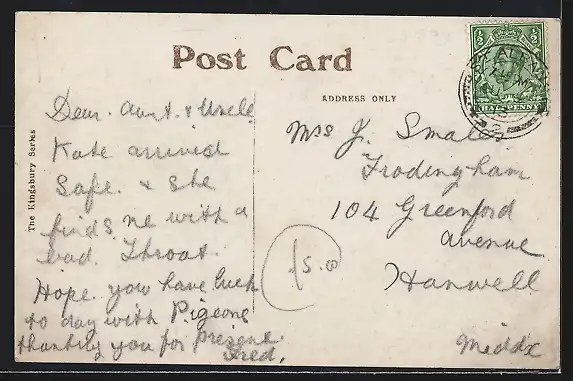 Post Card
ADDRESS ONLY
The Kingsbury Series
HALF-PENNY
Dear. Aunt. & Uncle
Kate arrived
Safe. & She
finds me with a
bad. Throat.
Hope. you have luck
to day with Pigeons
thanking you for present
Fred.
15.00
Mrs J. Smales
Frodingham
104 Greenford
avenue
Hanwell
Middx